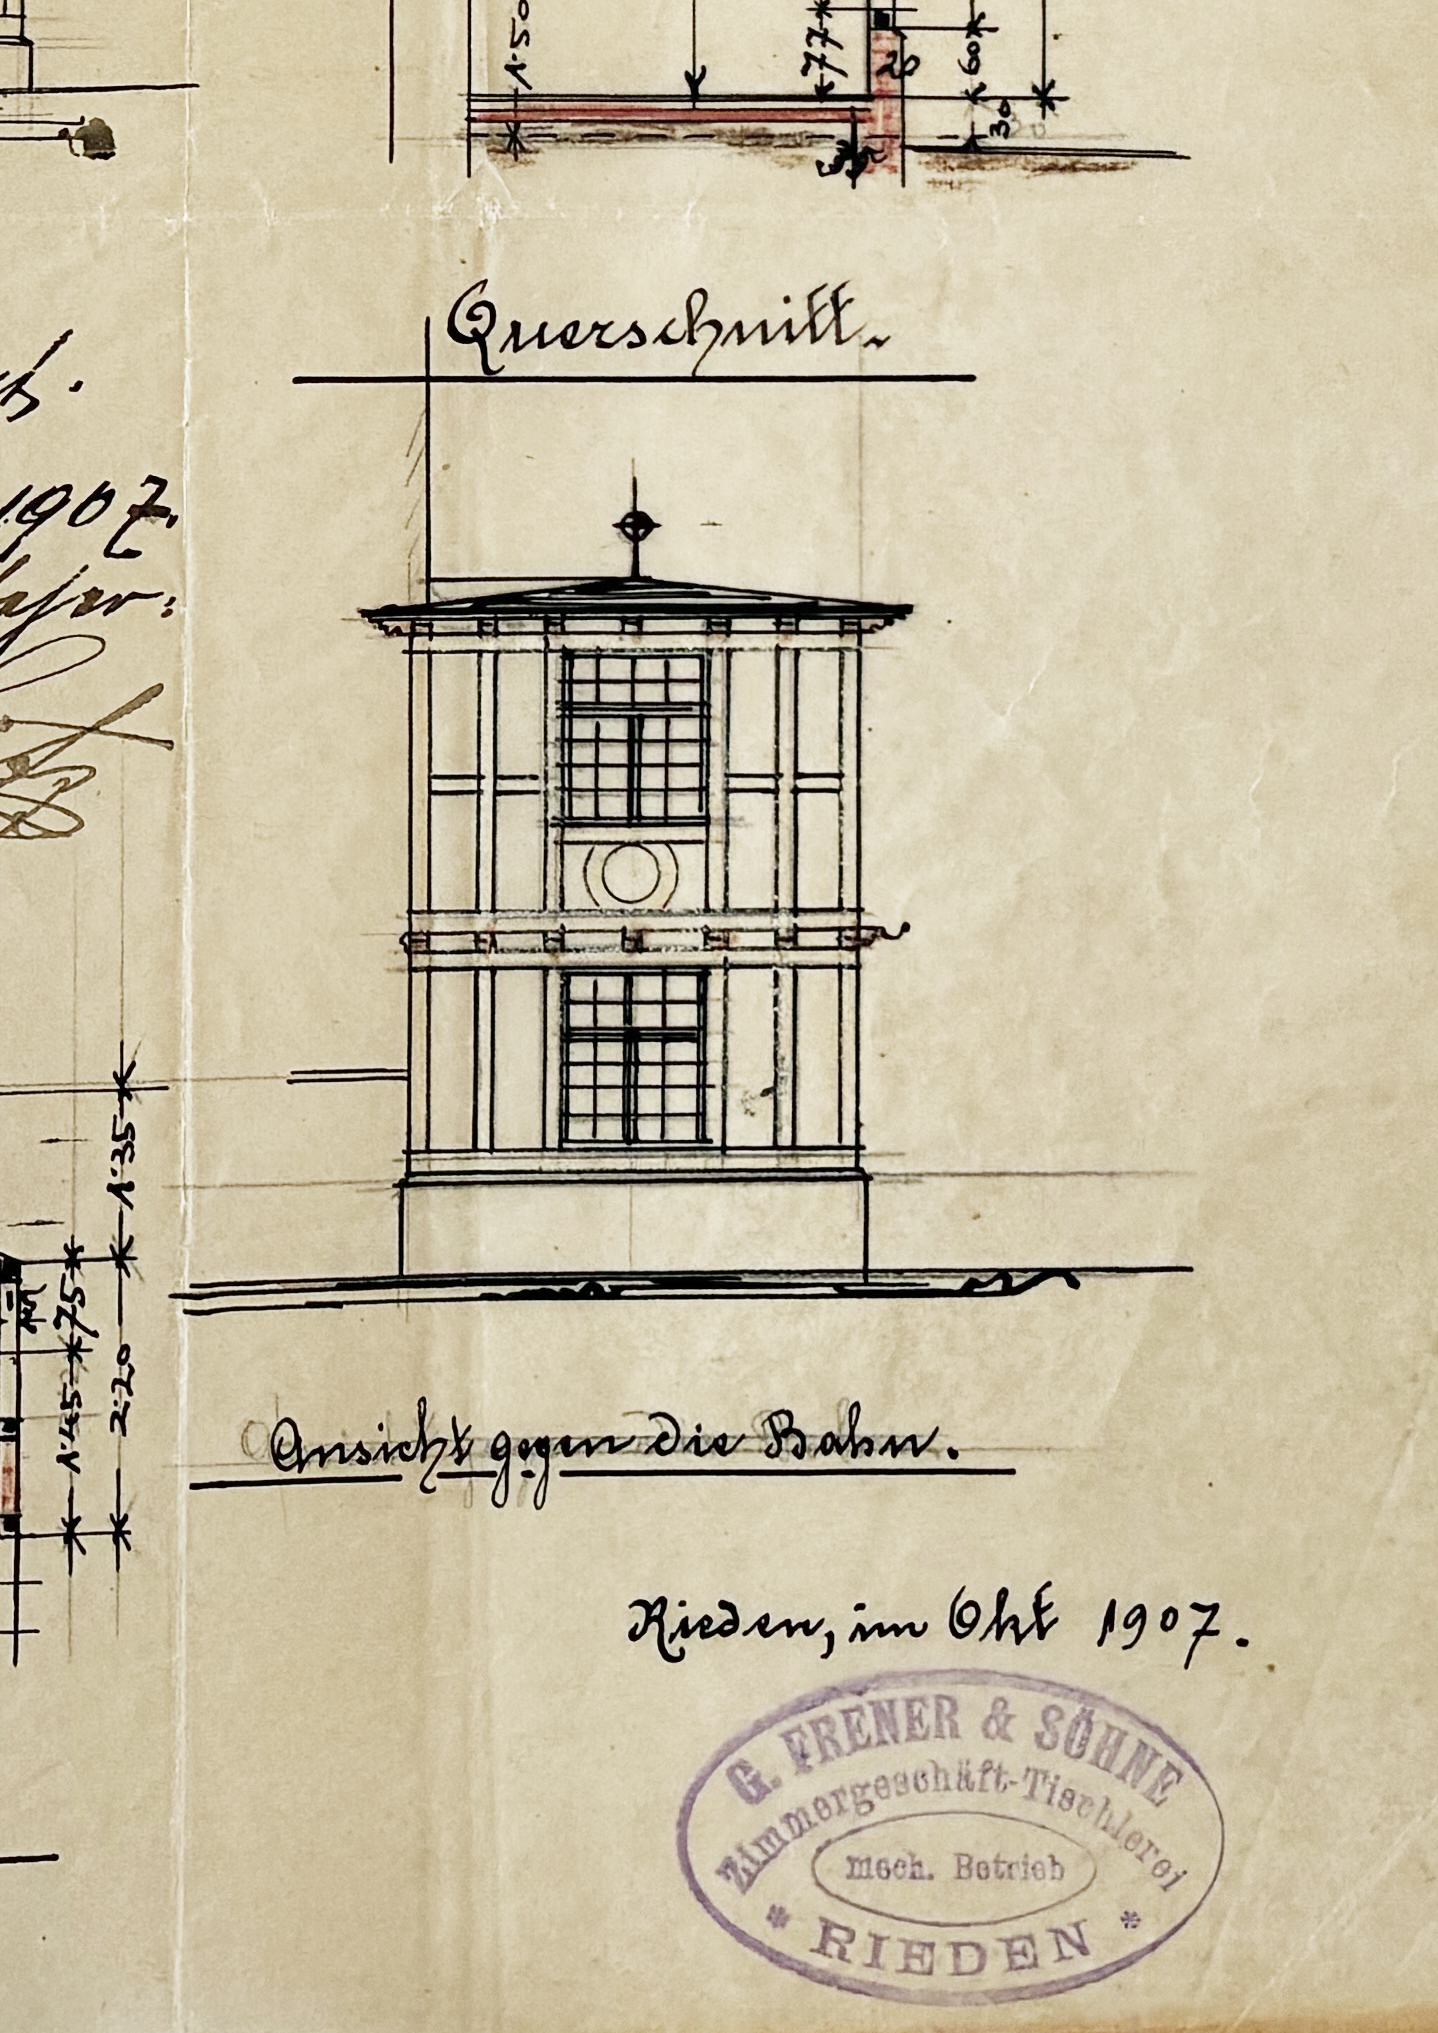 1.50
77
20
60
30
Querschnitt.
1907.
1.35
75
1.45
2.20
Ansicht gegen die Bahn.
Rieden, im Okt 1907.
G. FRENER & SÖHNE
Zimmergeschäft-Tischlerei
mech. Betrieb
* RIEDEN *